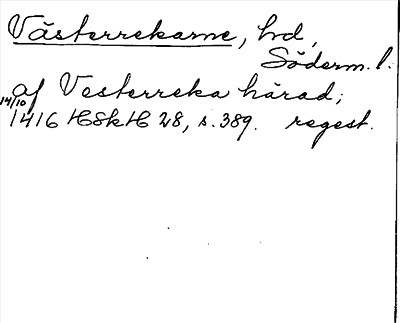 Västerrekarne, hd,
Söderm. l.
af Vesterreka härad;
14/10 1416 HSkH 28, s. 389. regest.